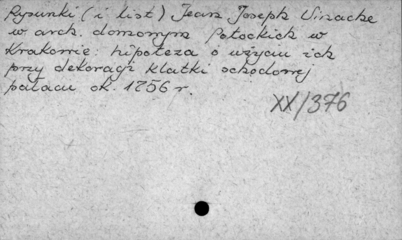 Rysunki (i list) Jean Joseph Vinache
w arch. domowym Potockich w
Krakowie: hipoteza o użyciu ich
przy dekoracji klatki schodowej
pałacu ok. 1756 r.
XX/376